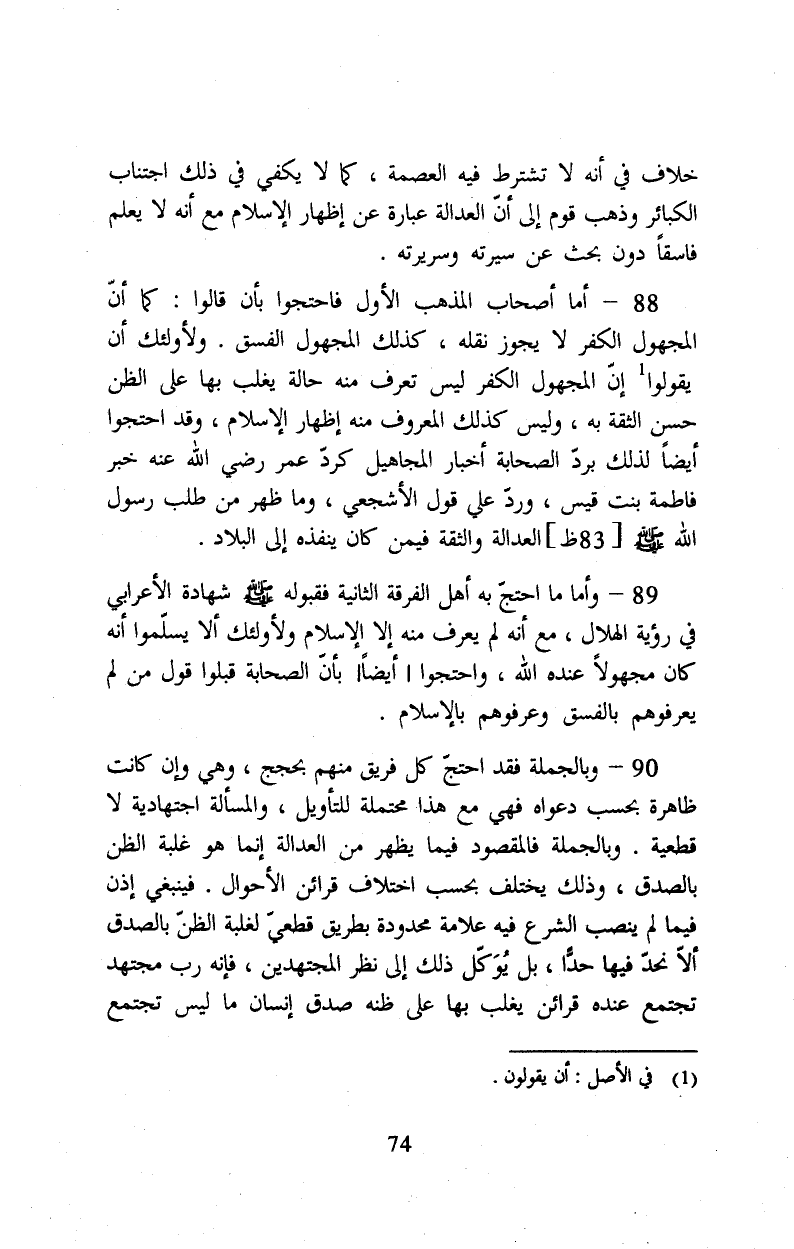 خلاف في أنه لا تشترط فيه العصمة ، كما لا يكفي في ذلك اجتناب
الكبائر وذهب قوم إلى أنّ العدالة عبارة عن إظهار الإسلام مع أنه لا يعلم
فاسقاً دون بحث عن سيرته وسريرته .
88 – أما أصحاب المذهب الأول فاحتجوا بأن قالوا : كما أنّ
المجهول الكفر لا يجوز نقله ، كذلك المجهول الفسق . ولأولئك أن
يقولوا1 إنّ المجهول الكفر ليس تعرف منه حالة يغلب بها على الظن
حسن الثقة به ، وليس كذلك المعروف منه إظهار الإسلام ، وقد احتجوا
أيضاً لذلك بردّ الصحابة أخبار المجاهيل كردّ عمر رضي الله عنه خبر
فاطمة بنت قيس ، وردّ علي قول الأشجعي ، وما ظهر من طلب رسول
الله ﷺ [ 83ظ] العدالة والثقة فيمن كان ينفذه إلى البلاد .
89 – وأما ما احتجّ به أهل الفرقة الثانية فقبوله ﷺ شهادة الأعرابي
في رؤية الهلال ، مع أنه لم يعرف منه إلا الإسلام ولأولئك ألا يسلّموا أنه
كان مجهولاً عنده الله ، واحتجوا | أيضاً| بأنّ الصحابة قبلوا قول من لم
يعرفوهم بالفسق وعرفوهم بالإسلام .
90 – وبالجملة فقد احتجّ كل فريق منهم بحجج ، وهي وإن كانت
ظاهرة بحسب دعواه فهي مع هذا محتملة للتأويل ، والمسألة اجتهادية لا
قطعية . وبالجملة فالمقصود فيما يظهر من العدالة إنما هو غلبة الظن
بالصدق ، وذلك يختلف بحسب اختلاف قرائن الأحوال . فينبغي إذن
فيما لم ينصب الشرع فيه علامة محدودة بطريق قطعيّ لغلبة الظنّ بالصدق
ألاّ نحدّ فيها حدًّا ، بل يُوَكّل ذلك إلى نظر المجتهدين ، فإنه رب مجتهد
تجتمع عنده قرائن يغلب بها على ظنه صدق إنسان ما ليس تجتمع
(1) في الأصل : أن يقولون .
74